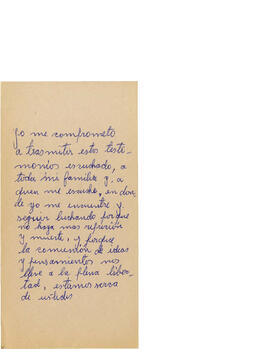 Yo me comprometo
a trasmitir estos testi-
monios escuchado, a
toda mi familia y a
quien me escuche, en don-
de yo me encuentre y
seguir luchando porque
no haya mas represión
y muerte, y porque
la comunión de ideas
y pensamientos nos
lleve a la plena liber-
tad, estamos cerca
de ustedes